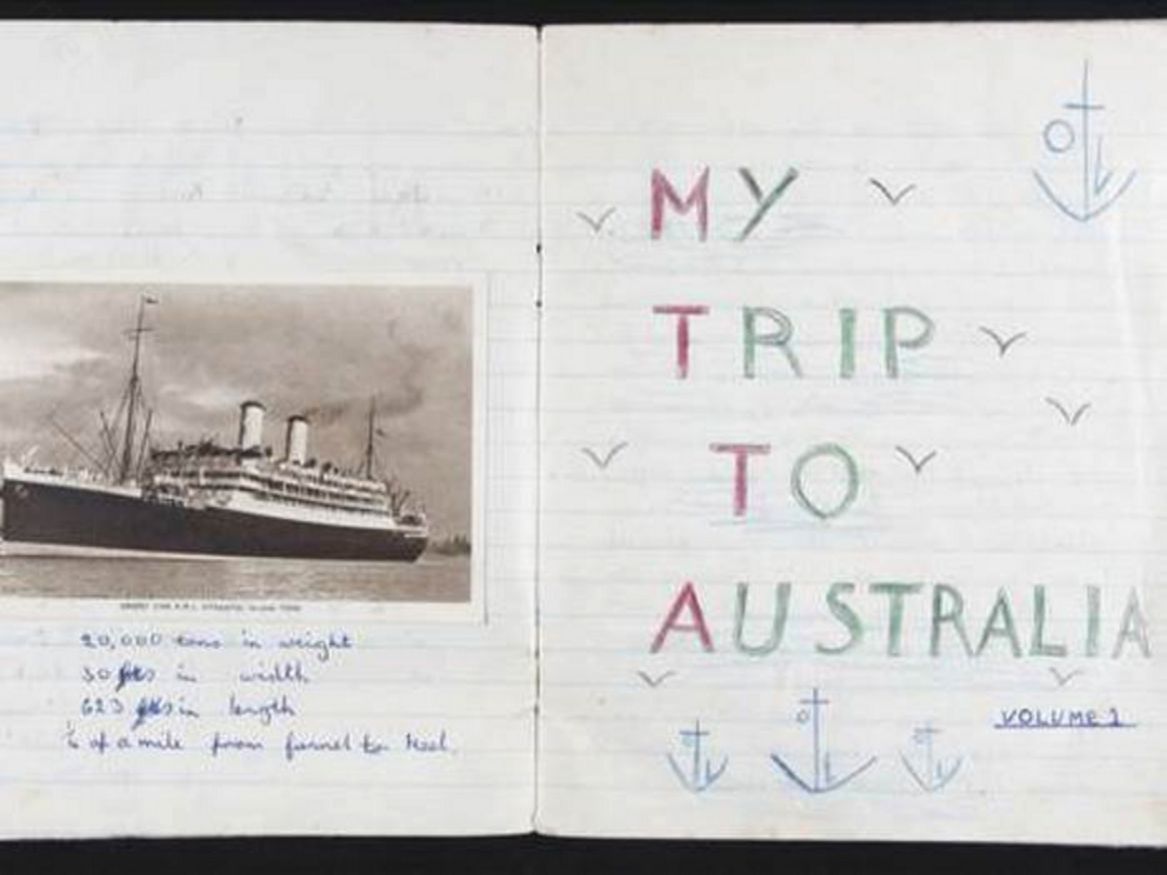 ORIENT LINE R.M.S. 20,000 TONS
20,000 tons in weight
30 fts in width
623 fts in length
of a mile from funnel to keel.
MY
TRIP
TO
AUSTRALIA
VOLUME 1